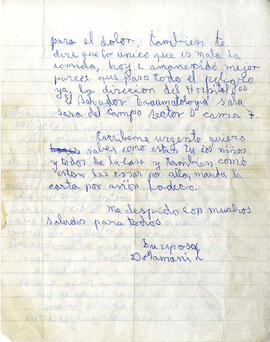 para el dolor, tambien te
dire que lo unico que es mala la
comida, hoy h amanesido mejor
parece que paso todo el peligro
ya, la direcion del Hospital es
Salvador traumatologia sala
Sara del Campo sector D cama 7.
Escribeme urgente quiero
saber como estas tu los niños
y todos de la casa y tambien como
estan las cosas por alla, manda la
carta por avión
Me despido con muchos
saludos para todos
Su esposa